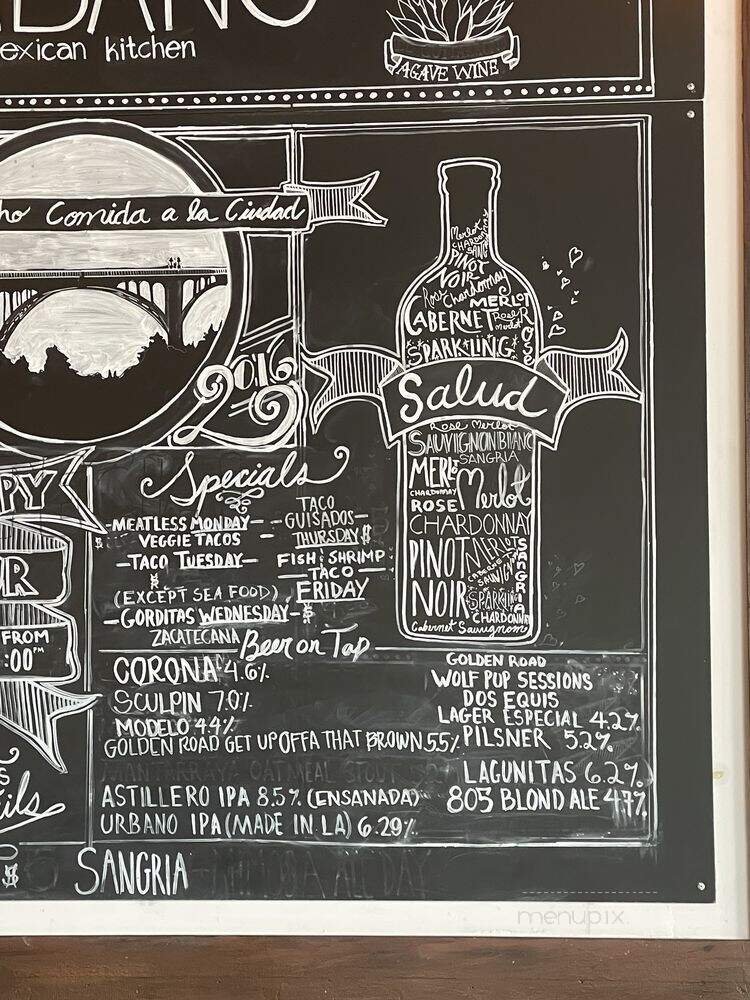 exican kitchen
AGAVE WINE
ho Comida a la Ciudad
2016
Salud
Merlot
CHARDONNAY
SANG
PINOT
NOIR
Rose Chardonnay
MERLOT
CABERNET
Rose
Merlot
SPARKLING
Rose Merlot
SAUVIGNON BLANC
SANGRIA
MERLOT
CHARDONNAY
Merlot
ROSE
CHARDONNAY
PINOT
MERLOT
SANGRIA
NOIR
SPARKLING
CHARDONNAY
Cabernet Sauvignon
PPY
UR
FROM
:00PM
ils
$
Specials
-MEATLESS MONDAY-
$ VEGGIE TACOS
-TACO TUESDAY-
$
(EXCEPT SEA FOOD)
-GORDITAS WEDNESDAY-$
ZACATECANA
TACO
-GUISADOS-
-THURSDAY$
FISH & SHRIMP
-TACO-
FRIDAY
$
Beer on Tap
CORONA 4.6%
SCULPIN 7.0%
MODELO 4.4%
GOLDEN ROAD GET UP OFFA THAT BROWN 5.5%
OATMEAL STOUT
ASTILLERO IPA 8.5% (ENSANADA)
URBANO IPA (MADE IN LA) 6.29%
GOLDEN ROAD
WOLF PUP SESSIONS
DOS EQUIS
LAGER ESPECIAL 4.2%
PILSNER 5.2%
LAGUNITAS 6.2%
805 BLOND ALE 4.7%
SANGRIA
ALL DAY
menupix